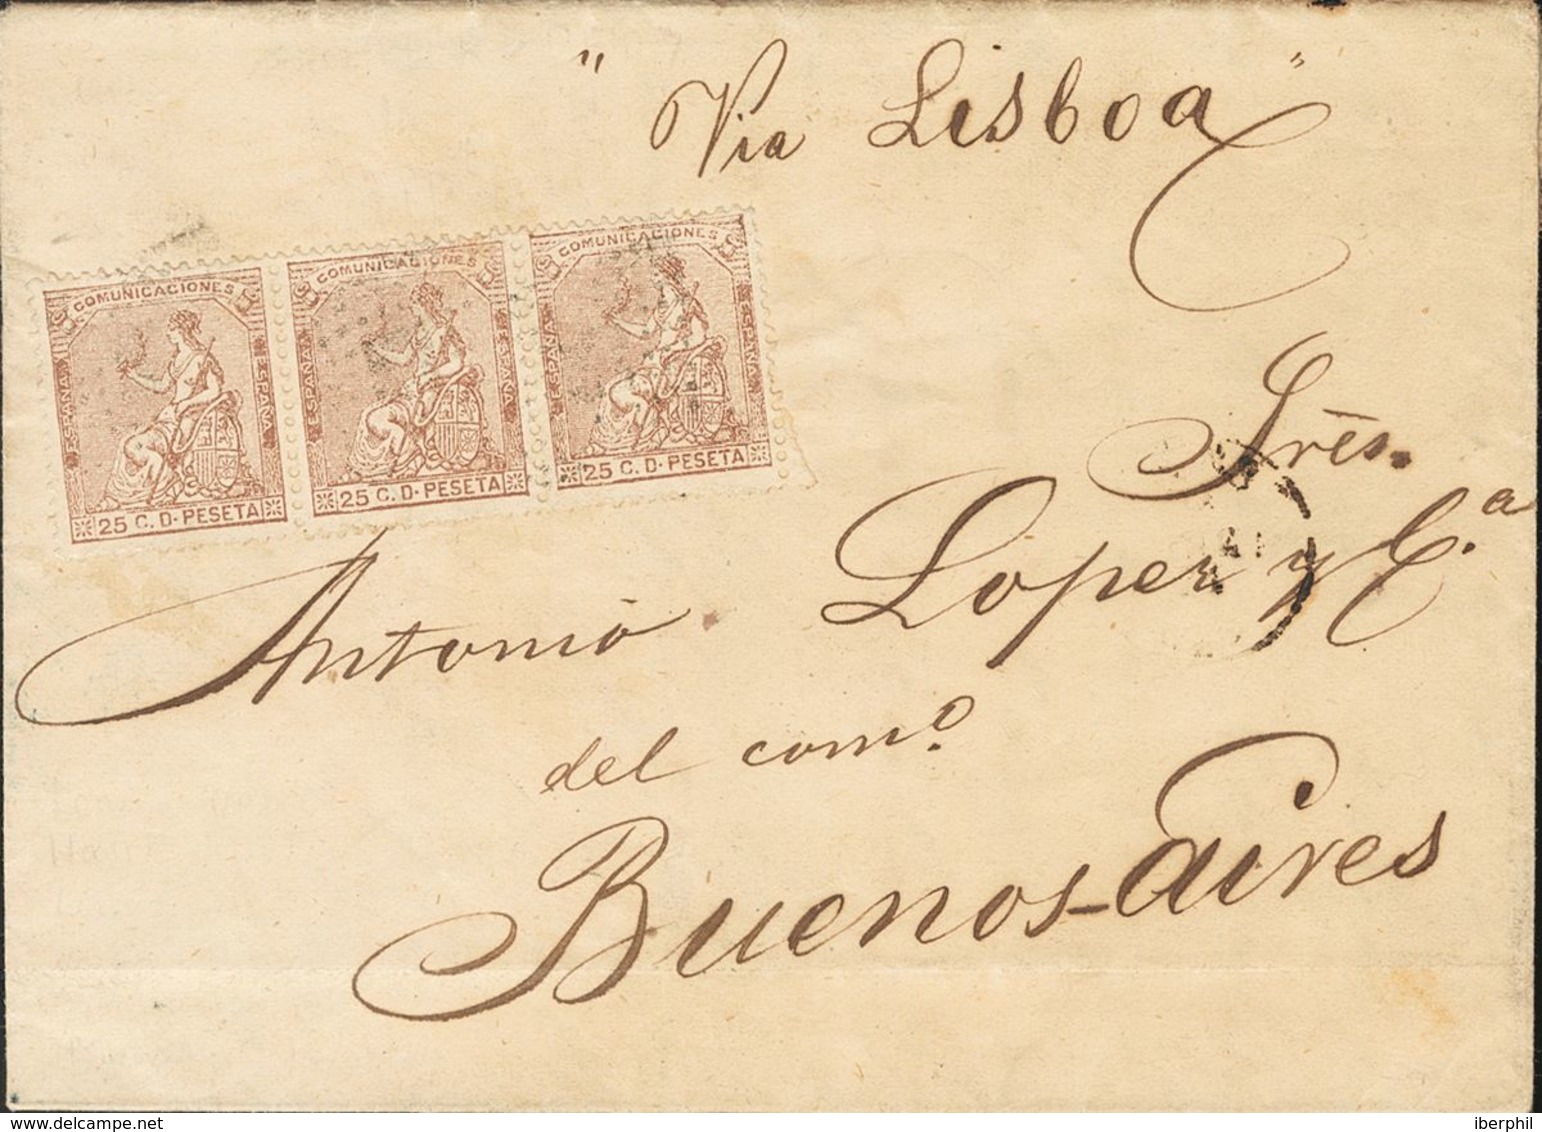 " Via Lisboa "
COMUNICACIONES
ESPAÑA
ESPAÑA
25 C. D. PESETA
COMUNICACIONES
ESPAÑA
ESPAÑA
25 C. D. PESETA
COMUNICACIONES
ESPAÑA
ESPAÑA
25 C. D. PESETA
Srēs.
Antonio Lopez y C.ª
del com.º
Buenos-Aires
delcampe.net
iberphil